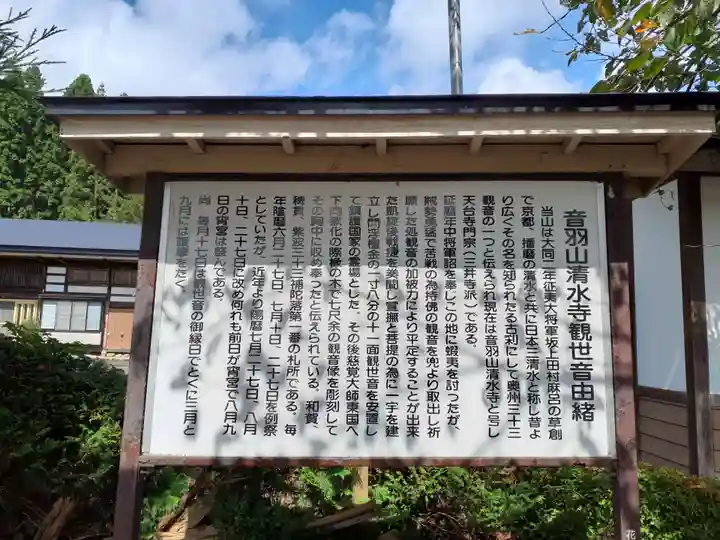 音羽山清水寺観世音由緒
当山は大同二年征夷大将軍坂上田村麻呂の草創
で京都、播磨の清水と共に日本三清水と称し昔よ
り広くその名を知られたる古刹にして奥州三十三
観音の一つと伝えられ現在は音羽山清水寺と号し
天台寺門宗（三井寺派）である。
延暦年中将軍詔を奉じこの地に蝦夷を討ったが、
賊勢勇猛で苦戦の為持佛の観音を兜より取出し祈
願した処観音の加被力により平定することが出来
た凱旋後戦捷を美聞し賞撫と菩提の為に一宇を建
立し閻浮檀金の一寸八分の十一面観世音を安置し
て鎮護国家の霊場とした、その後慈覚大師東国へ
下向教化の際桂の木で七尺余の観音像を彫刻して
その胸中に収め奉つたと伝えられている。和賀、
稗貫、紫波三十三補陀落第一番の札所である。毎
年陰暦六月二十七日、七月十日、二十七日を例祭
としていたが、近年より陽暦七月二十七日、八月
十日、二十七日に改め何れも前日が宵宮で八月九
日の宵宮は盛んである。
尚、毎月十七日は観世音の御縁日でとくに三月と
九月には護摩をたく。
花